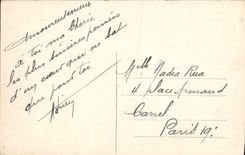 Amoureusement
à toi ma chérie
les plus sincères pensées
d'un cœur qui ne bat
que pour toi
Melle Nadia
4 place Armand
Carrel
Paris 19e